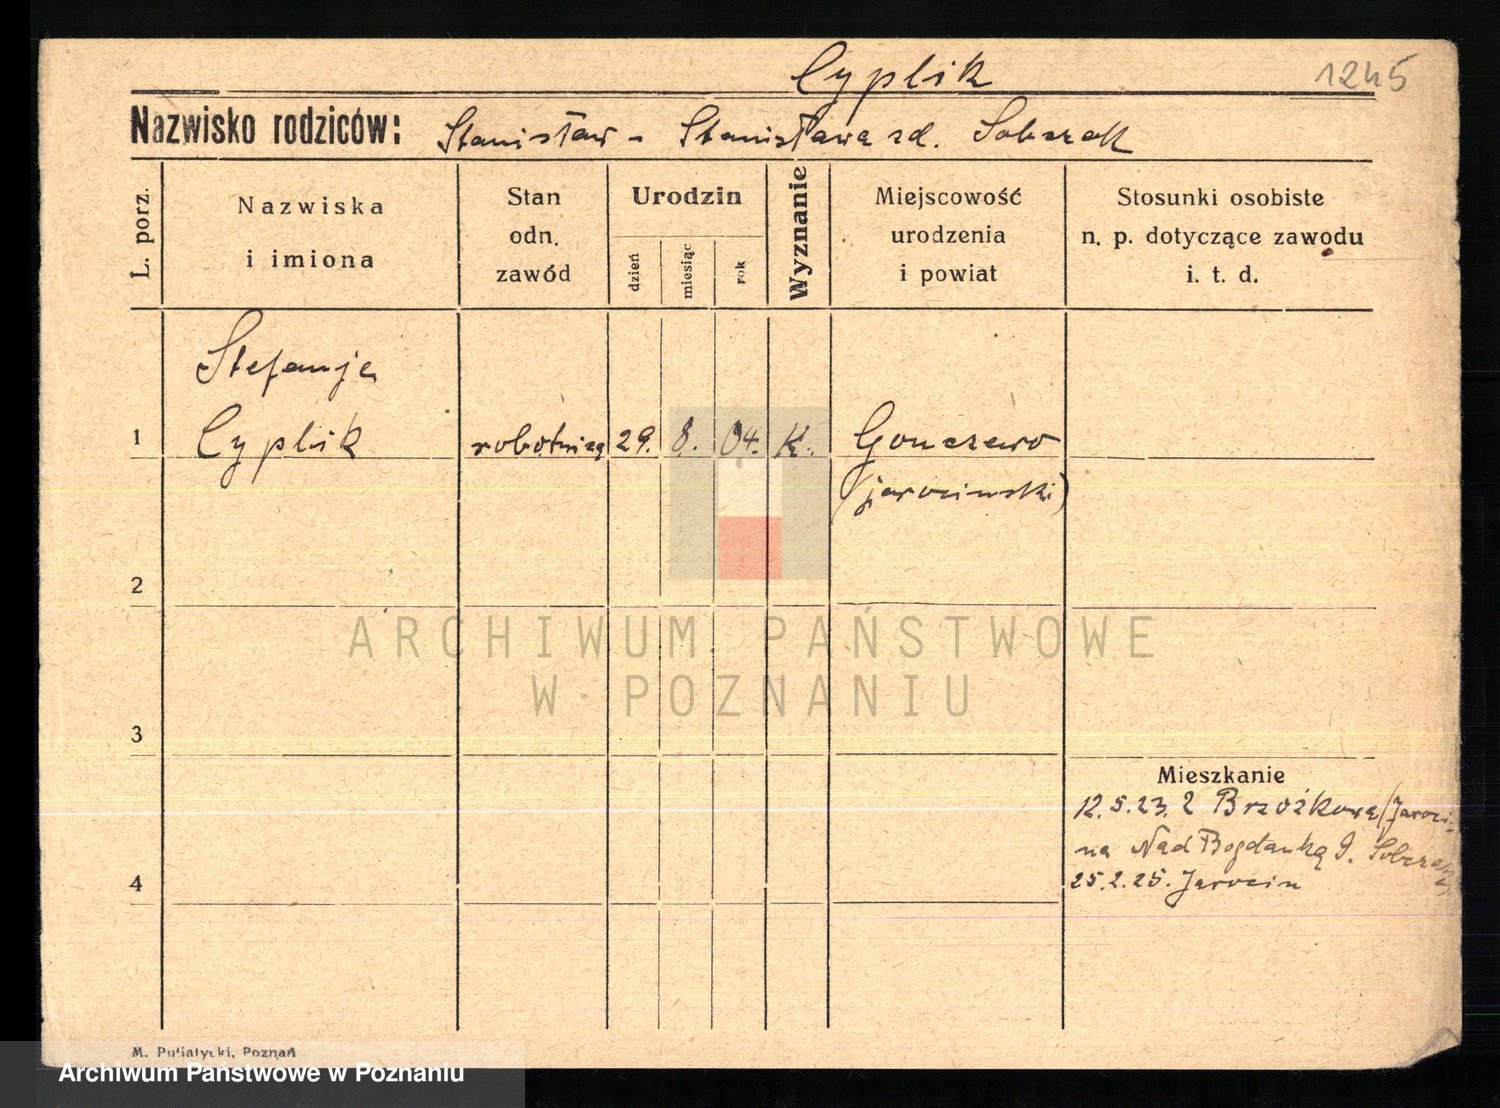 Cyplik 1245
Nazwisko rodziców: Stanisław - Stanisława zd. Sobczak
L. porz.
Nazwiska
i imiona
Stan
odn.
zawód
Urodzin
dzień
miesiąc
rok
Wyznanie
Miejscowość
urodzenia
i powiat
Stosunki osobiste
n. p. dotyczące zawodu
i. t. d.
Stefanja
1 Cyplik robotnica 29. 8. 04. K. Gonczewo
(jarocinski)
2
ARCHIWUM PAŃSTWOWE
W POZNANIU
3
Mieszkanie
12.5.23. 2 Brzóźkowa (Jaroci-
na Nad Bogdanką 9. Sobczak
4 25.2.25. Jarocin
M. Putiatycki, Poznań
Archiwum Państwowe w Poznaniu